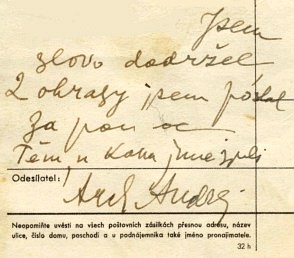 Jsem
slovo dodržel
2 obrazy jsem poslal
za pon
Těm, u koho jsme
Odesílatel:
Arch Andrej
Neopomiňte uvésti na všech poštovních zásilkách přesnou adresu, název
ulice, číslo domu, poschodí a u podnájemníka také jméno pronajímatele.
32 h